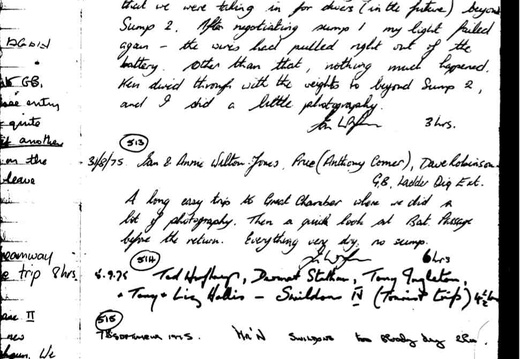 that we were taking in for divers (in the future) beyond
Sump 2. After negotiating sump 1 my light failed
again - the wires had pulled right out of the
battery. Other than that, nothing much happened.
Ken dived through with the weights to beyond Sump 2,
and I did a little photography.
3 hrs.
GB,
entry
quite
another
on the
leave
trip 8 hrs.
II
new
We
513
3/8/75 Ian & Annie Wilton-Jones, Prew (Anthony Comer), Dave Robinson
G.B. Ladder Dig Ext.
A long easy trip to Great Chamber where we did a
lot of photography. Then a quick look at Bat Passage
before the return. Everything very dry, no sump.
6 hrs
514
5.9.75 Ted Dermot Tony
+ Tony & Liz Hollis - Swildon IV (Tourist trip) 4½ hrs
515
7 September 1975. SWILDONS too Bloody dry